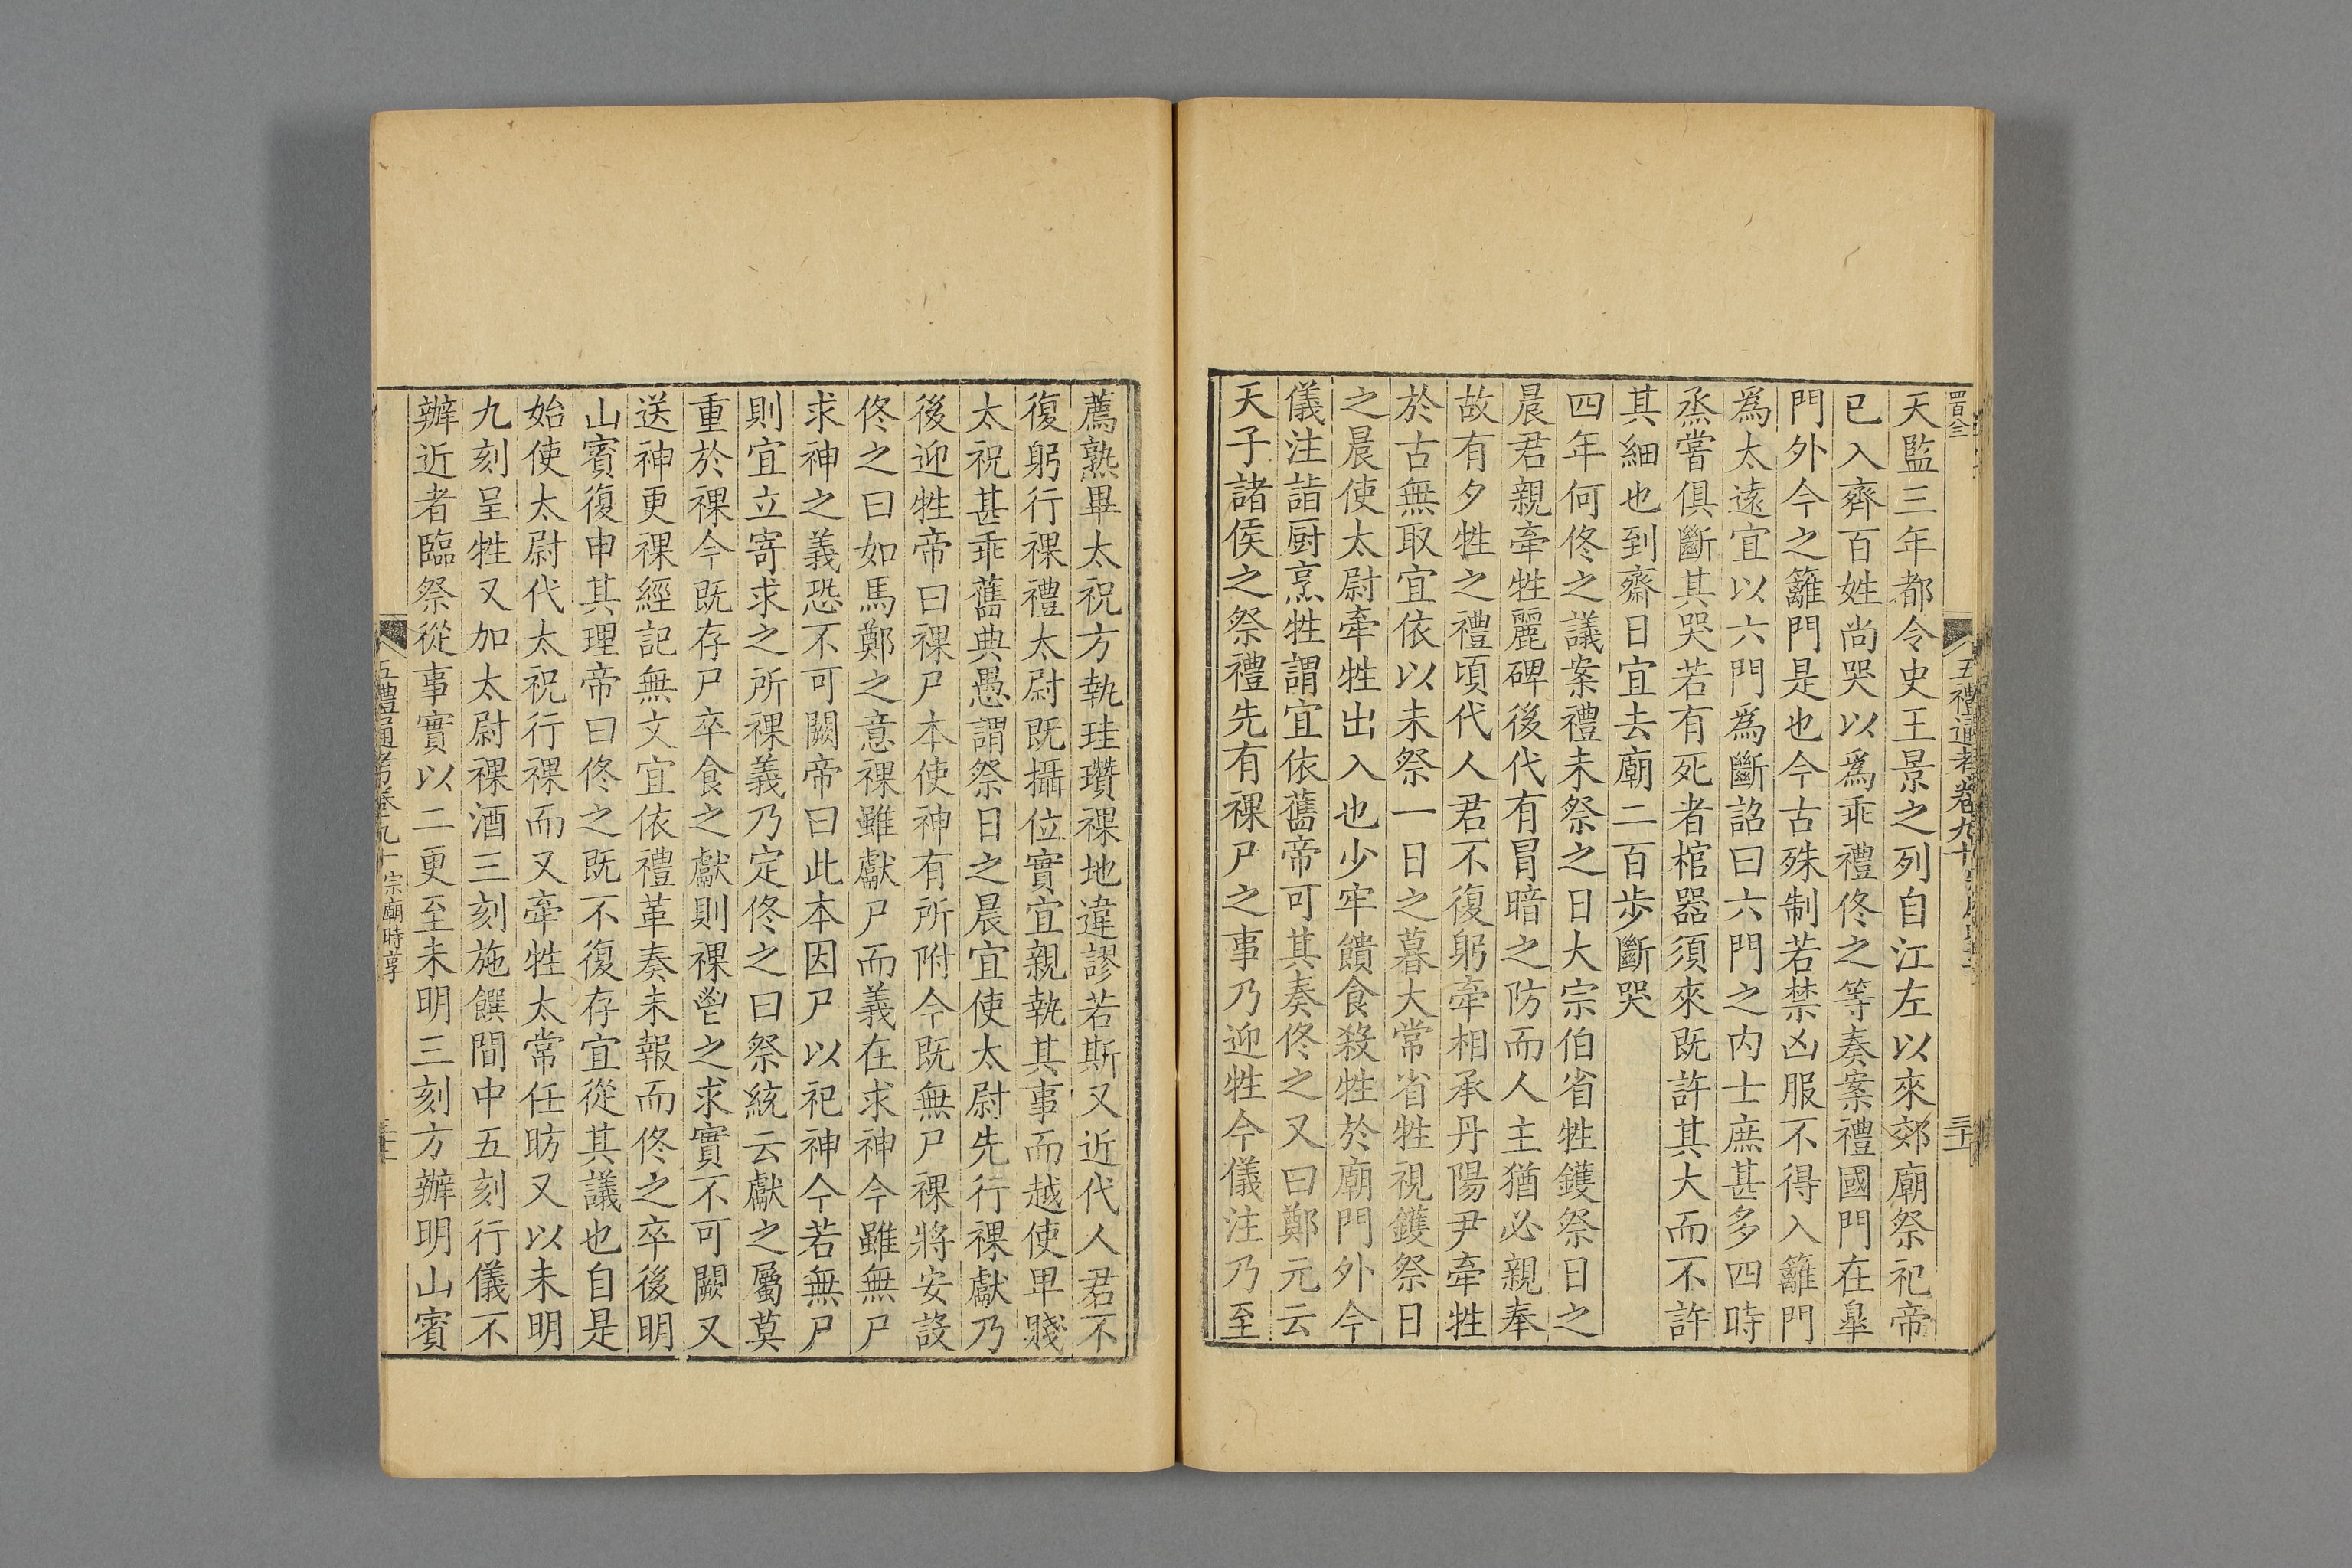 四百八十三
五禮通考卷九十
天監三年都令史王景之列自江左以來郊廟祭祀帝
已入齊百姓尚哭以爲乖禮佟之等奏案禮國門在臯
門外今之籬門是也今古殊制若禁凶服不得入籬門
爲太遠宜以六門爲斷詔曰六門之内士庶甚多四時
烝嘗俱斷其哭若有死者棺器須來既許其大而不許
其細也到齋日宜去廟二百步斷哭
四年何佟之議案禮未祭之日大宗伯省牲鑊祭日之
晨君親牽牲麗碑後代有冒暗之防而人主猶必親奉
故有夕牲之禮頃代人君不復躬牽相承丹陽尹牽牲
於古無取宜依以未祭一日之暮大常省牲視鑊祭日
之晨使太尉牽牲出入也少牢饋食殺牲於廟門外今
儀注詣厨烹牲謂宜依舊帝可其奏佟之又曰鄭元云
天子諸侯之祭禮先有祼尸之事乃迎牲今儀注乃至
薦熟畢太祝方執珪瓚祼地違謬若斯又近代人君不
復躬行祼禮太尉既攝位實宜親執其事而越使卑賤
太祝甚乖舊典愚謂祭日之晨宜使太尉先行祼獻乃
後迎牲帝曰祼尸本使神有所附今既無尸祼將安設
佟之曰如馬鄭之意祼雖獻尸而義在求神今雖無尸
求神之義恐不可闕帝曰此本因尸以祀神今若無尸
則宜立寄求之所祼義乃定佟之曰祭統云獻之屬莫
重於祼今既存尸卒食之獻則祼鬯之求實不可闕又
送神更祼經記無文宜依禮革奏未報而佟之卒後明
山賓復申其理帝曰佟之既不復存宜從其議也自是
始使太尉代太祝行祼而又牽牲太常任昉又以未明
九刻呈牲又加太尉祼酒三刻施饌間中五刻行儀不
辦近者臨祭從事實以二更至未明三刻方辦明山賓
五禮通考卷九十 宗廟時享